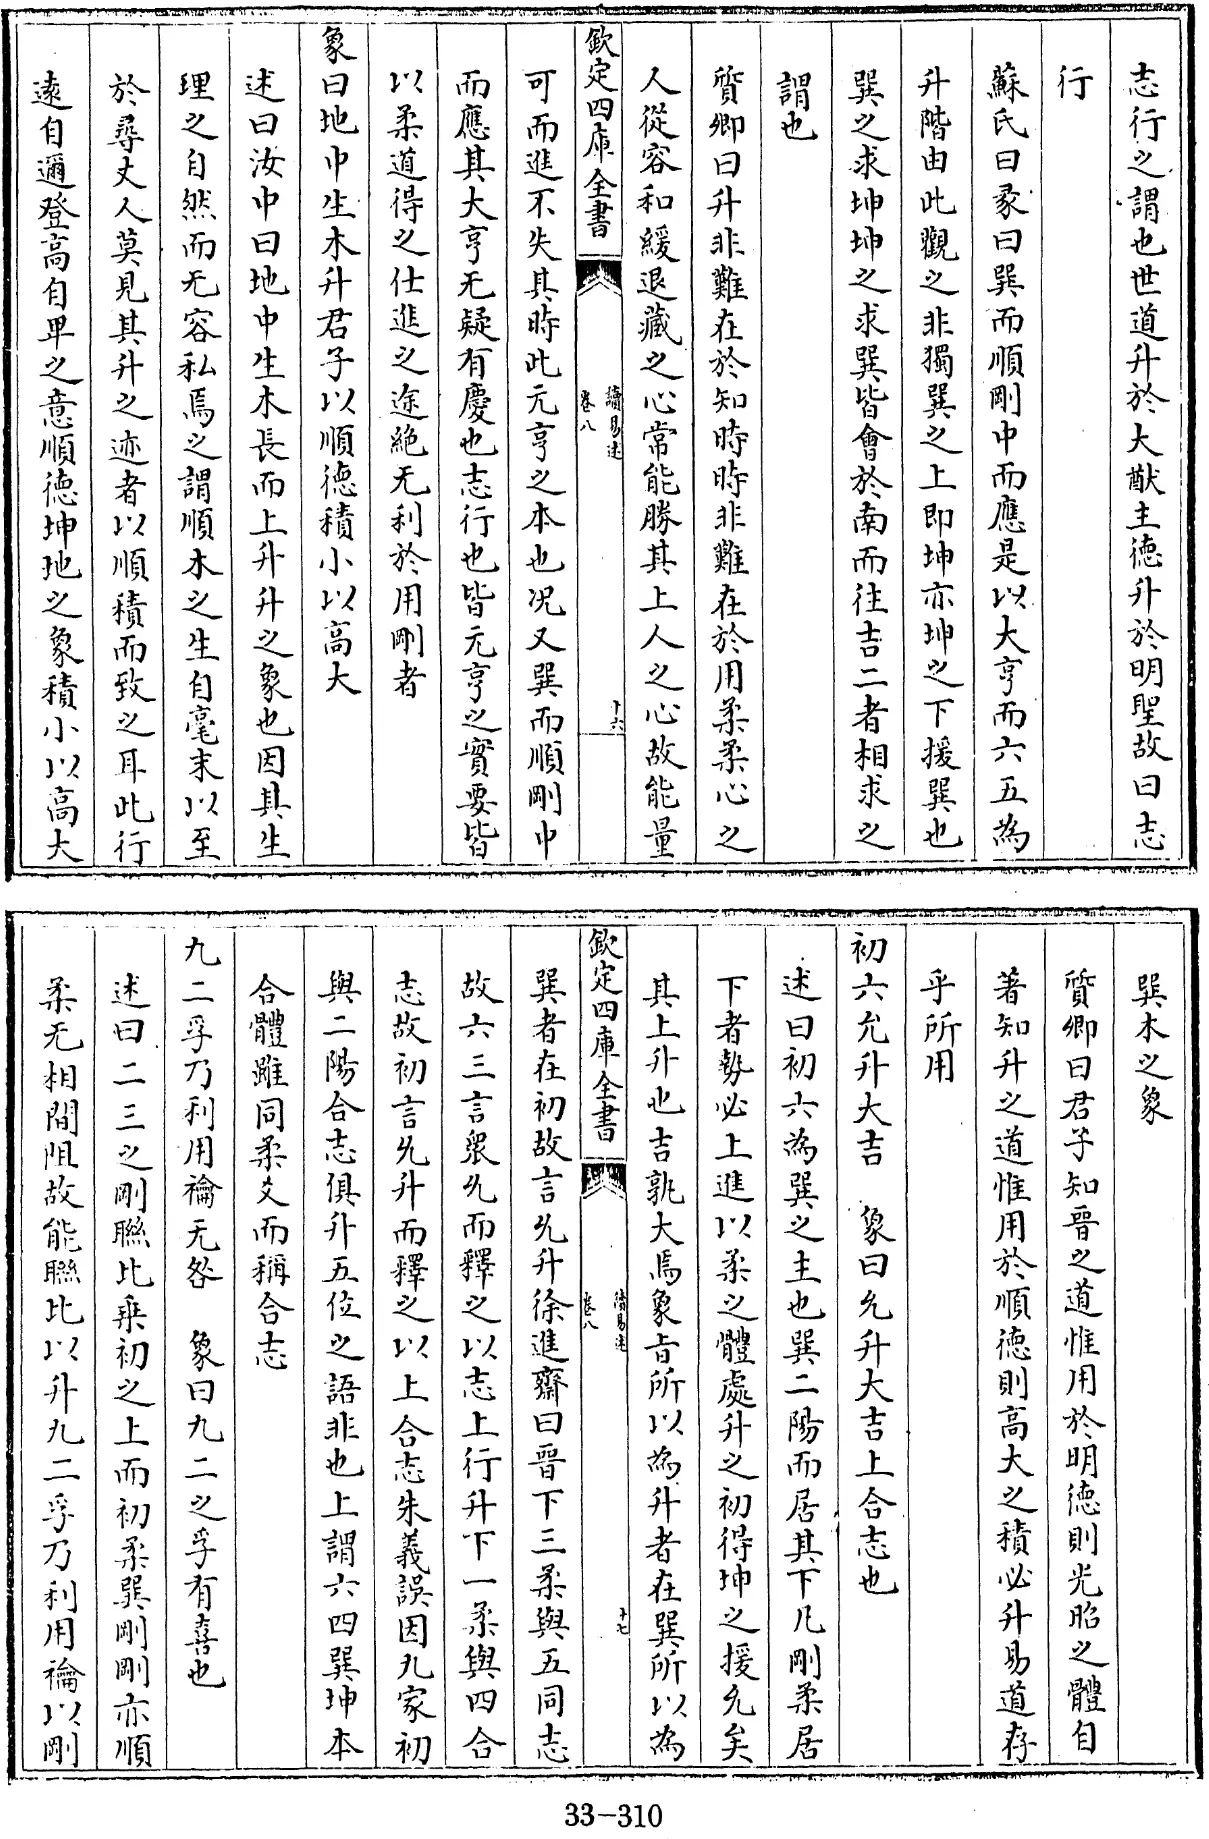 志行之謂也世道升於大猷主德升於明聖故曰志
行
蘇氏曰彖曰巽而順剛中而應是以大亨而六五為
升階由此觀之非獨巽之上即坤亦坤之下援巽也
巽之求坤坤之求巽皆會於南而往吉二者相求之
謂也
質卿曰升非難在於知時時非難在於用柔柔心之
人從容和緩退藏之心常能勝其上人之心故能量
欽定四庫全書
讀易述
卷八
十六
可而進不失其時此元亨之本也況又巽而順剛中
而應其大亨无疑有慶也志行也皆元亨之實要皆
以柔道得之仕進之途絶无利於用剛者
象曰地中生木升君子以順德積小以高大
述曰汝中曰地中生木長而上升升之象也因其生
理之自然而无容私焉之謂順木之生自毫末以至
於尋丈人莫見其升之迹者以順積而致之耳此行
遠自邇登高自卑之意順德坤地之象積小以高大
巽木之象
質卿曰君子知晉之道惟用於明德則光昭之體自
著知升之道惟用於順德則高大之積必升易道存
乎所用
初六允升大吉 象曰允升大吉上合志也
述曰初六為巽之主也巽二陽而居其下凡剛柔居
下者勢必上進以柔之體處升之初得坤之援允矣
其上升也吉孰大焉象旨所以為升者在巽所以為
欽定四庫全書
讀易述
卷八
十七
巽者在初故言允升徐進齋曰晉下三柔與五同志
故六三言衆允而釋之以志上行升下一柔與四合
志故初言允升而釋之以上合志朱義誤因九家初
與二陽合志俱升五位之語非也上謂六四巽坤本
合體雖同柔爻而稱合志
九二孚乃利用禴无咎 象曰九二之孚有喜也
述曰二三之剛聯比乘初之上而初柔巽剛剛亦順
柔无相間阻故能聯比以升九二孚乃利用禴以剛
33-310